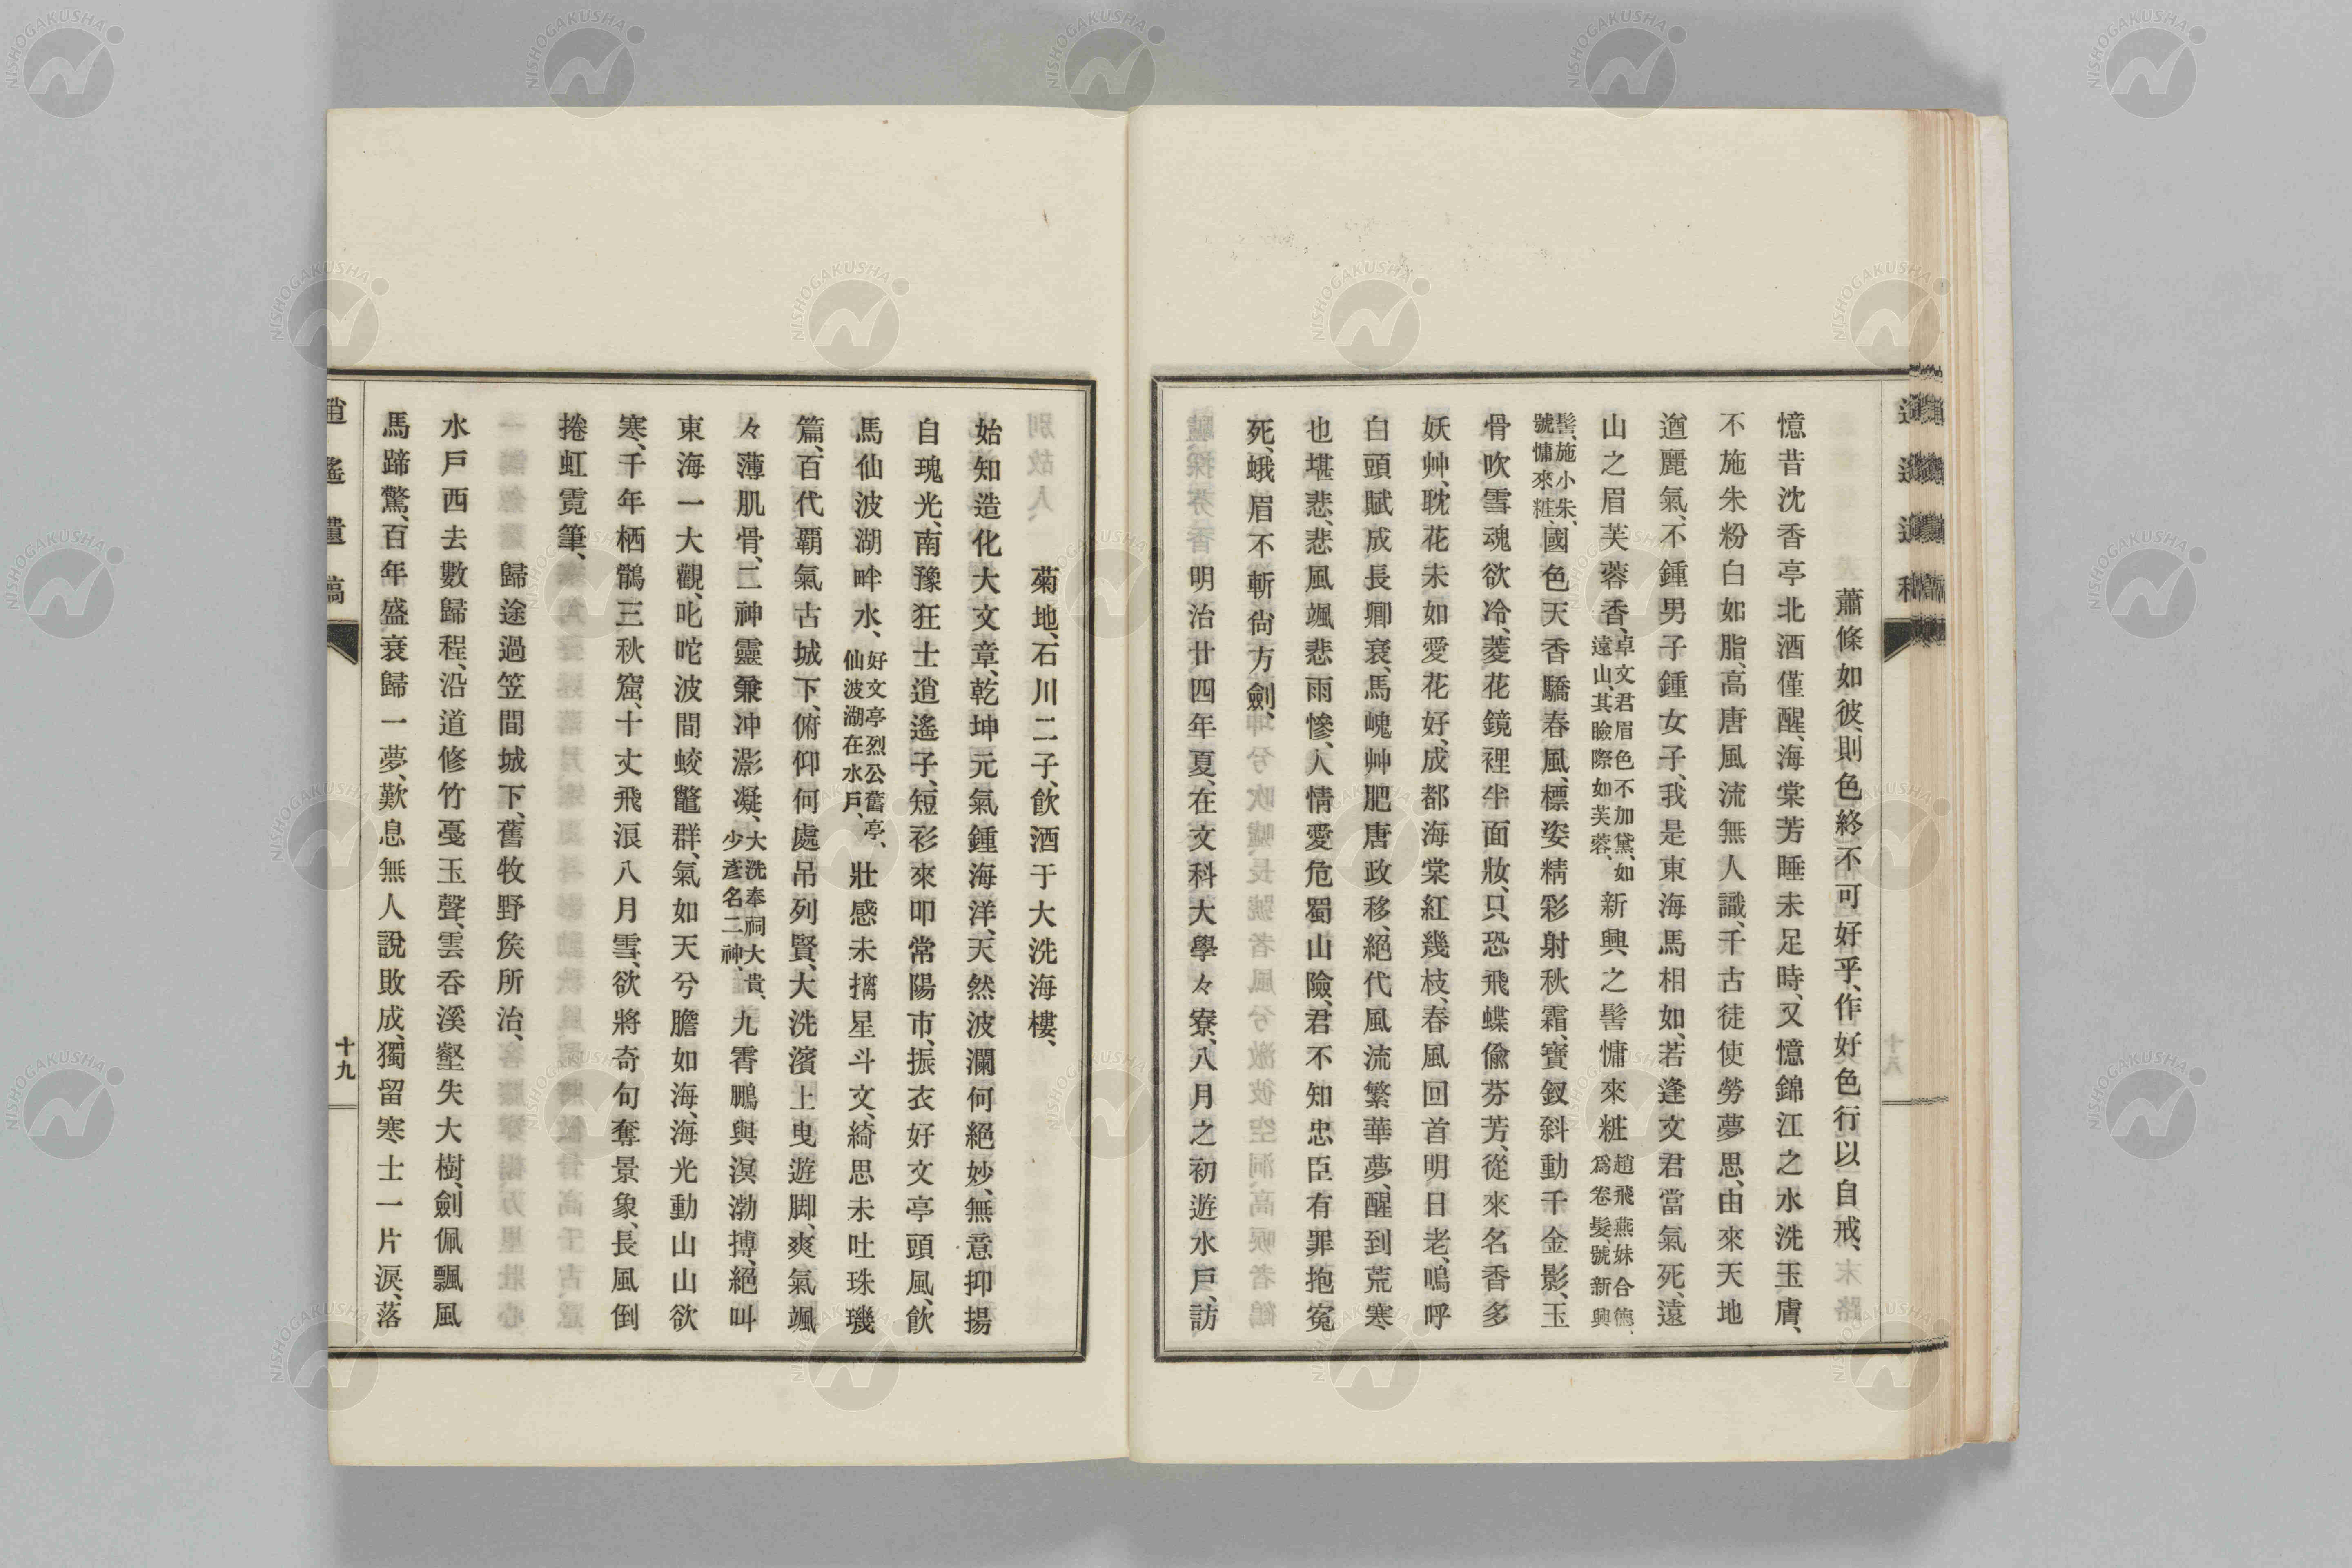 蕭條如彼、則色終不可好乎、作好色行以自戒、
憶昔沈香亭北酒僅醒、海棠芳睡未足時、又憶錦江之水洗玉膚、
不施朱粉白如脂、高唐風流無人識、千古徒使勞夢思、由來天地
遒麗氣、不鍾男子鍾女子、我是東海馬相如、若逢文君當氣死、遠
山之眉芙蓉香、卓文君眉色不加黛、如遠山、其瞼際如芙蓉、新興之髻慵來粧趙飛燕妹合德、爲卷髮、號新興
髻、施小朱、號慵來粧、國色天香驕春風、標姿精彩射秋霜、寶釵斜動千金影、玉
骨吹雪魂欲冷、菱花鏡裡半面妝、只恐飛蝶偸芬芳、從來名香多
妖艸、耽花未如愛花好、成都海棠紅幾枝、春風回首明日老、嗚呼
白頭賦成長卿衰、馬嵬艸肥唐政移、絕代風流繁華夢、醒到荒寒
也堪悲、悲風颯悲雨慘、人情愛危蜀山險、君不知忠臣有罪抱冤
死、蛾眉不斬尙方劍、
明治廿四年夏、在文科大學々寮、八月之初遊水戶、訪
菊地、石川二子、飮酒于大洗海樓、
始知造化大文章、乾坤元氣鍾海洋、天然波瀾何絕妙、無意抑揚
自瑰光、南豫狂士逍遙子、短衫來叩常陽市、振衣好文亭頭風、飮
馬仙波湖畔水、好文亭烈公舊亭、仙波湖在水戶、壯感未摛星斗文、綺思未吐珠璣
篇、百代覇氣古城下、俯仰何處吊列賢、大洗濱上曳遊脚、爽氣颯
々薄肌骨、二神靈兼冲澎凝、大洗奉祠大貴、少彥名二神、九霄鵬與溟渤搏、絕叫
東海一大觀、叱咜波間蛟鼉群、氣如天兮膽如海、海光動山山欲
寒、千年栖鶻三秋窟、十丈飛浪八月雪、欲將奇句奪景象、長風倒
捲虹霓筆、
歸途過笠間城下、舊牧野侯所治、
水戶西去數歸程、沿道修竹戞玉聲、雲呑溪壑失大樹、劍佩飄風
馬蹄驚、百年盛衰歸一夢、歎息無人說敗成、獨留寒士一片淚、落
逍遙遺稿
十九